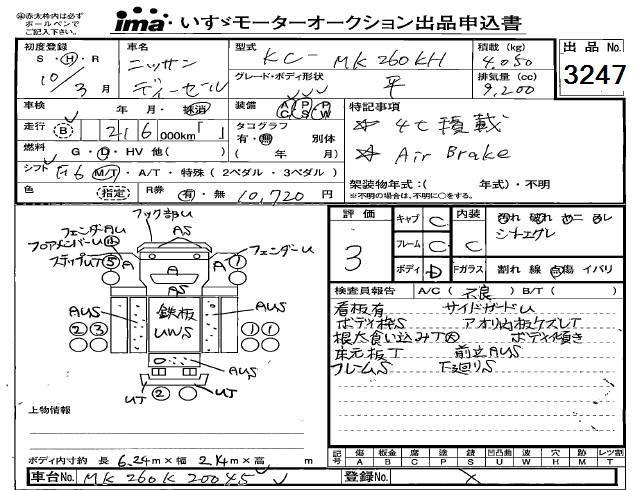 ㊟赤太枠内は必ず
ボールペンで
ご記入下さい。
ima いすゞモーターオークション出品申込書
初度登録
S・H・R
10/3月
車名
ニッサン
ディーゼル
型式
KC-MK260KH
グレード・ボディ形状
平
積載(kg)
4,050
排気量(cc)
9,200
出品No.
3247
車検
年・月・抹消
装備
A/C P/S P/W
走行
(B) 216000km「 」
タコグラフ
有・無 別体
( 年 月)
燃料
G・D・HV 他( )
シフト
F6 M/T・A/T・特殊(2ペダル・3ペダル)
色
(指定)
R券
有・無 10,720円
特記事項
☆ 4t積載
☆ Air Brake
架装物年式:( 年式)・不明
※不明の場合は、不明に○をする。
フック部U
AS
フェンダーAU
フロアメンバーU
ステップUT
フェンダーU
A
A
A
1
AUS
鉄板
UWS
AUS
2 3
1 1
AUS
UT
2
UT
上物情報
ボディ内寸約 長 6.24m×幅 2.14m×高 m
車台No.
MK260K 20045
評価
3
キャブ C
フレーム C
ボディ D
内装
C
Fガラス
割れ 線 点傷 イバリ
検査員報告 A/C(不良) B/T( )
看板有 サイドガードU
ボディ枠S アオリ内板ケズレT
根太食い込みT大 ボディ傾き
床元板T 前立AUS
フレームS 下廻りS
記号
傷 板金 腐 塗 錆 凹凸曲 波 穴 跡 レツ割
A B C P S U W H M T
登録No.